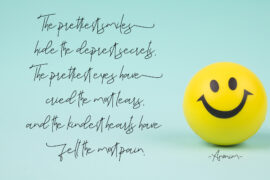 The prettiest smiles
hide the deepest secrets.
The prettiest eyes have
cried the most tears,
and the kindest hearts have
felt the most pain.
-Anonim-